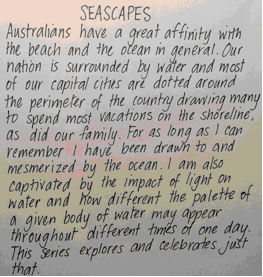 SEASCAPES
Australians have a great affinity with
the beach and the ocean in general. Our
nation is surrounded by water and most
of our capital cities are dotted around
the perimeter of the country drawing many
to spend most vacations on the shoreline,
as did our family. For as long as I can
remember I have been drawn to and
mesmerized by the ocean. I am also
captivated by the impact of light on
water and how different the palette of
a given body of water may appear
throughout different times of one day.
This series explores and celebrates just
that.